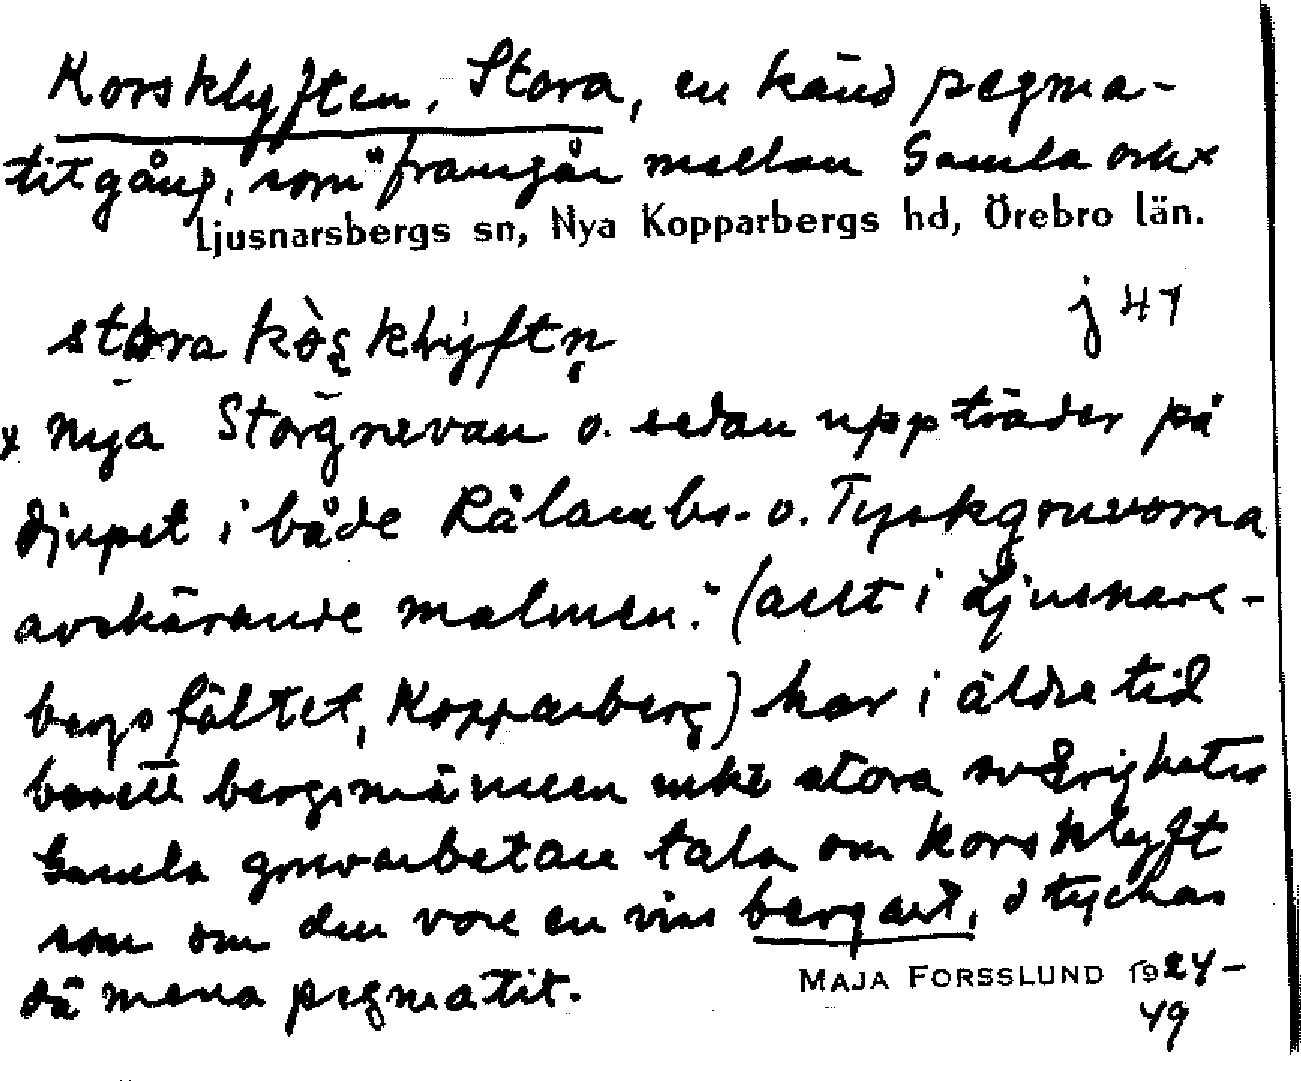 Korsklyften, Stora, en känd pegma-
titgång, som "framgår mellan Gamla och x
Ljusnarsbergs sn, Nya Kopparbergs hd, Örebro län.
j 47
stora kòs̨ klýftn̥
x Nya Storgruvan o. sedan uppträder på
djupet i både Rålambs- o. Tyskgruvorna
avskärande malmen." (allt i Ljusnars-
bergsfältet, Kopparberg) har i äldre tid
berett bergsmännen stora svårigheter
Gamla gruvarbetare tala om korsklyft
som om den vore en viss bergart, o tyckas
då mena pegmatit.
MAJA FORSSLUND 1924-
49